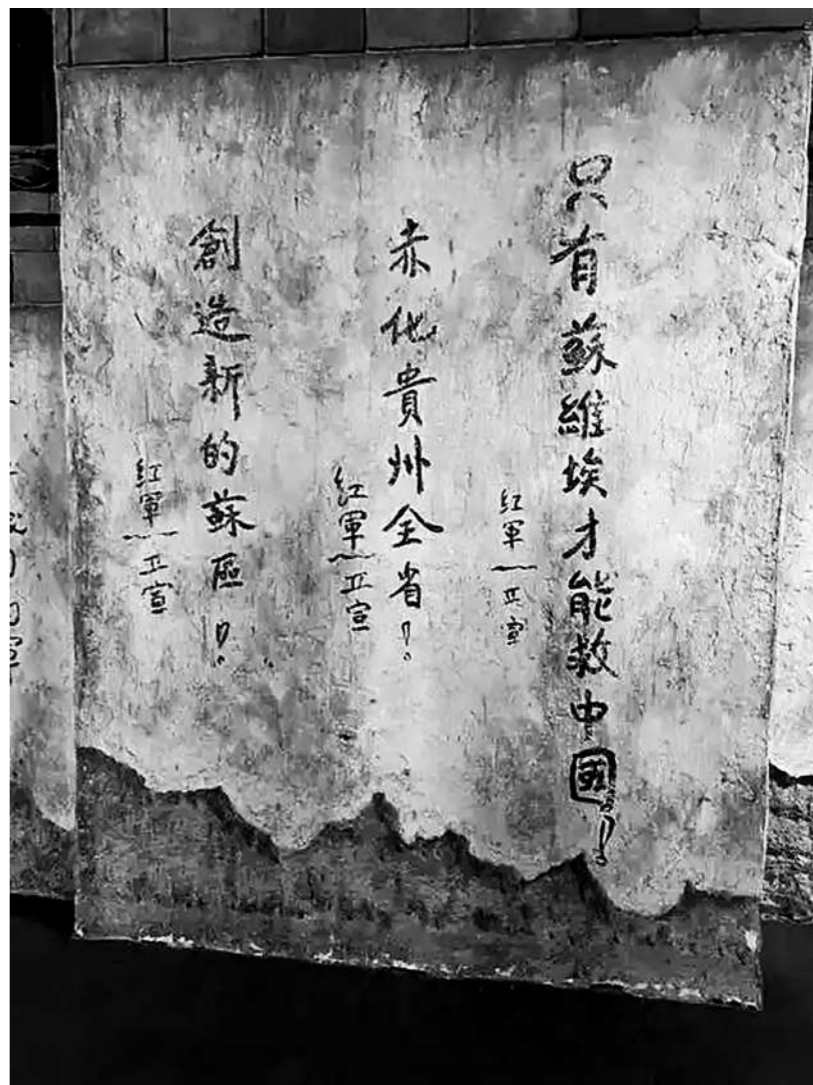 只有蘇維埃才能救中國！
红軍〜卫宣
赤化貴州全省！
红軍〜卫宣
創造新的蘇區！
红軍〜卫宣